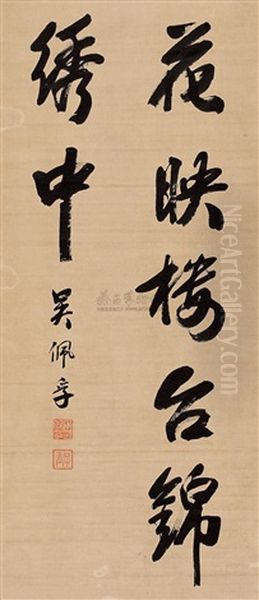 花映楼台錦
绣中
吴佩孚
NiceArtGallery.com